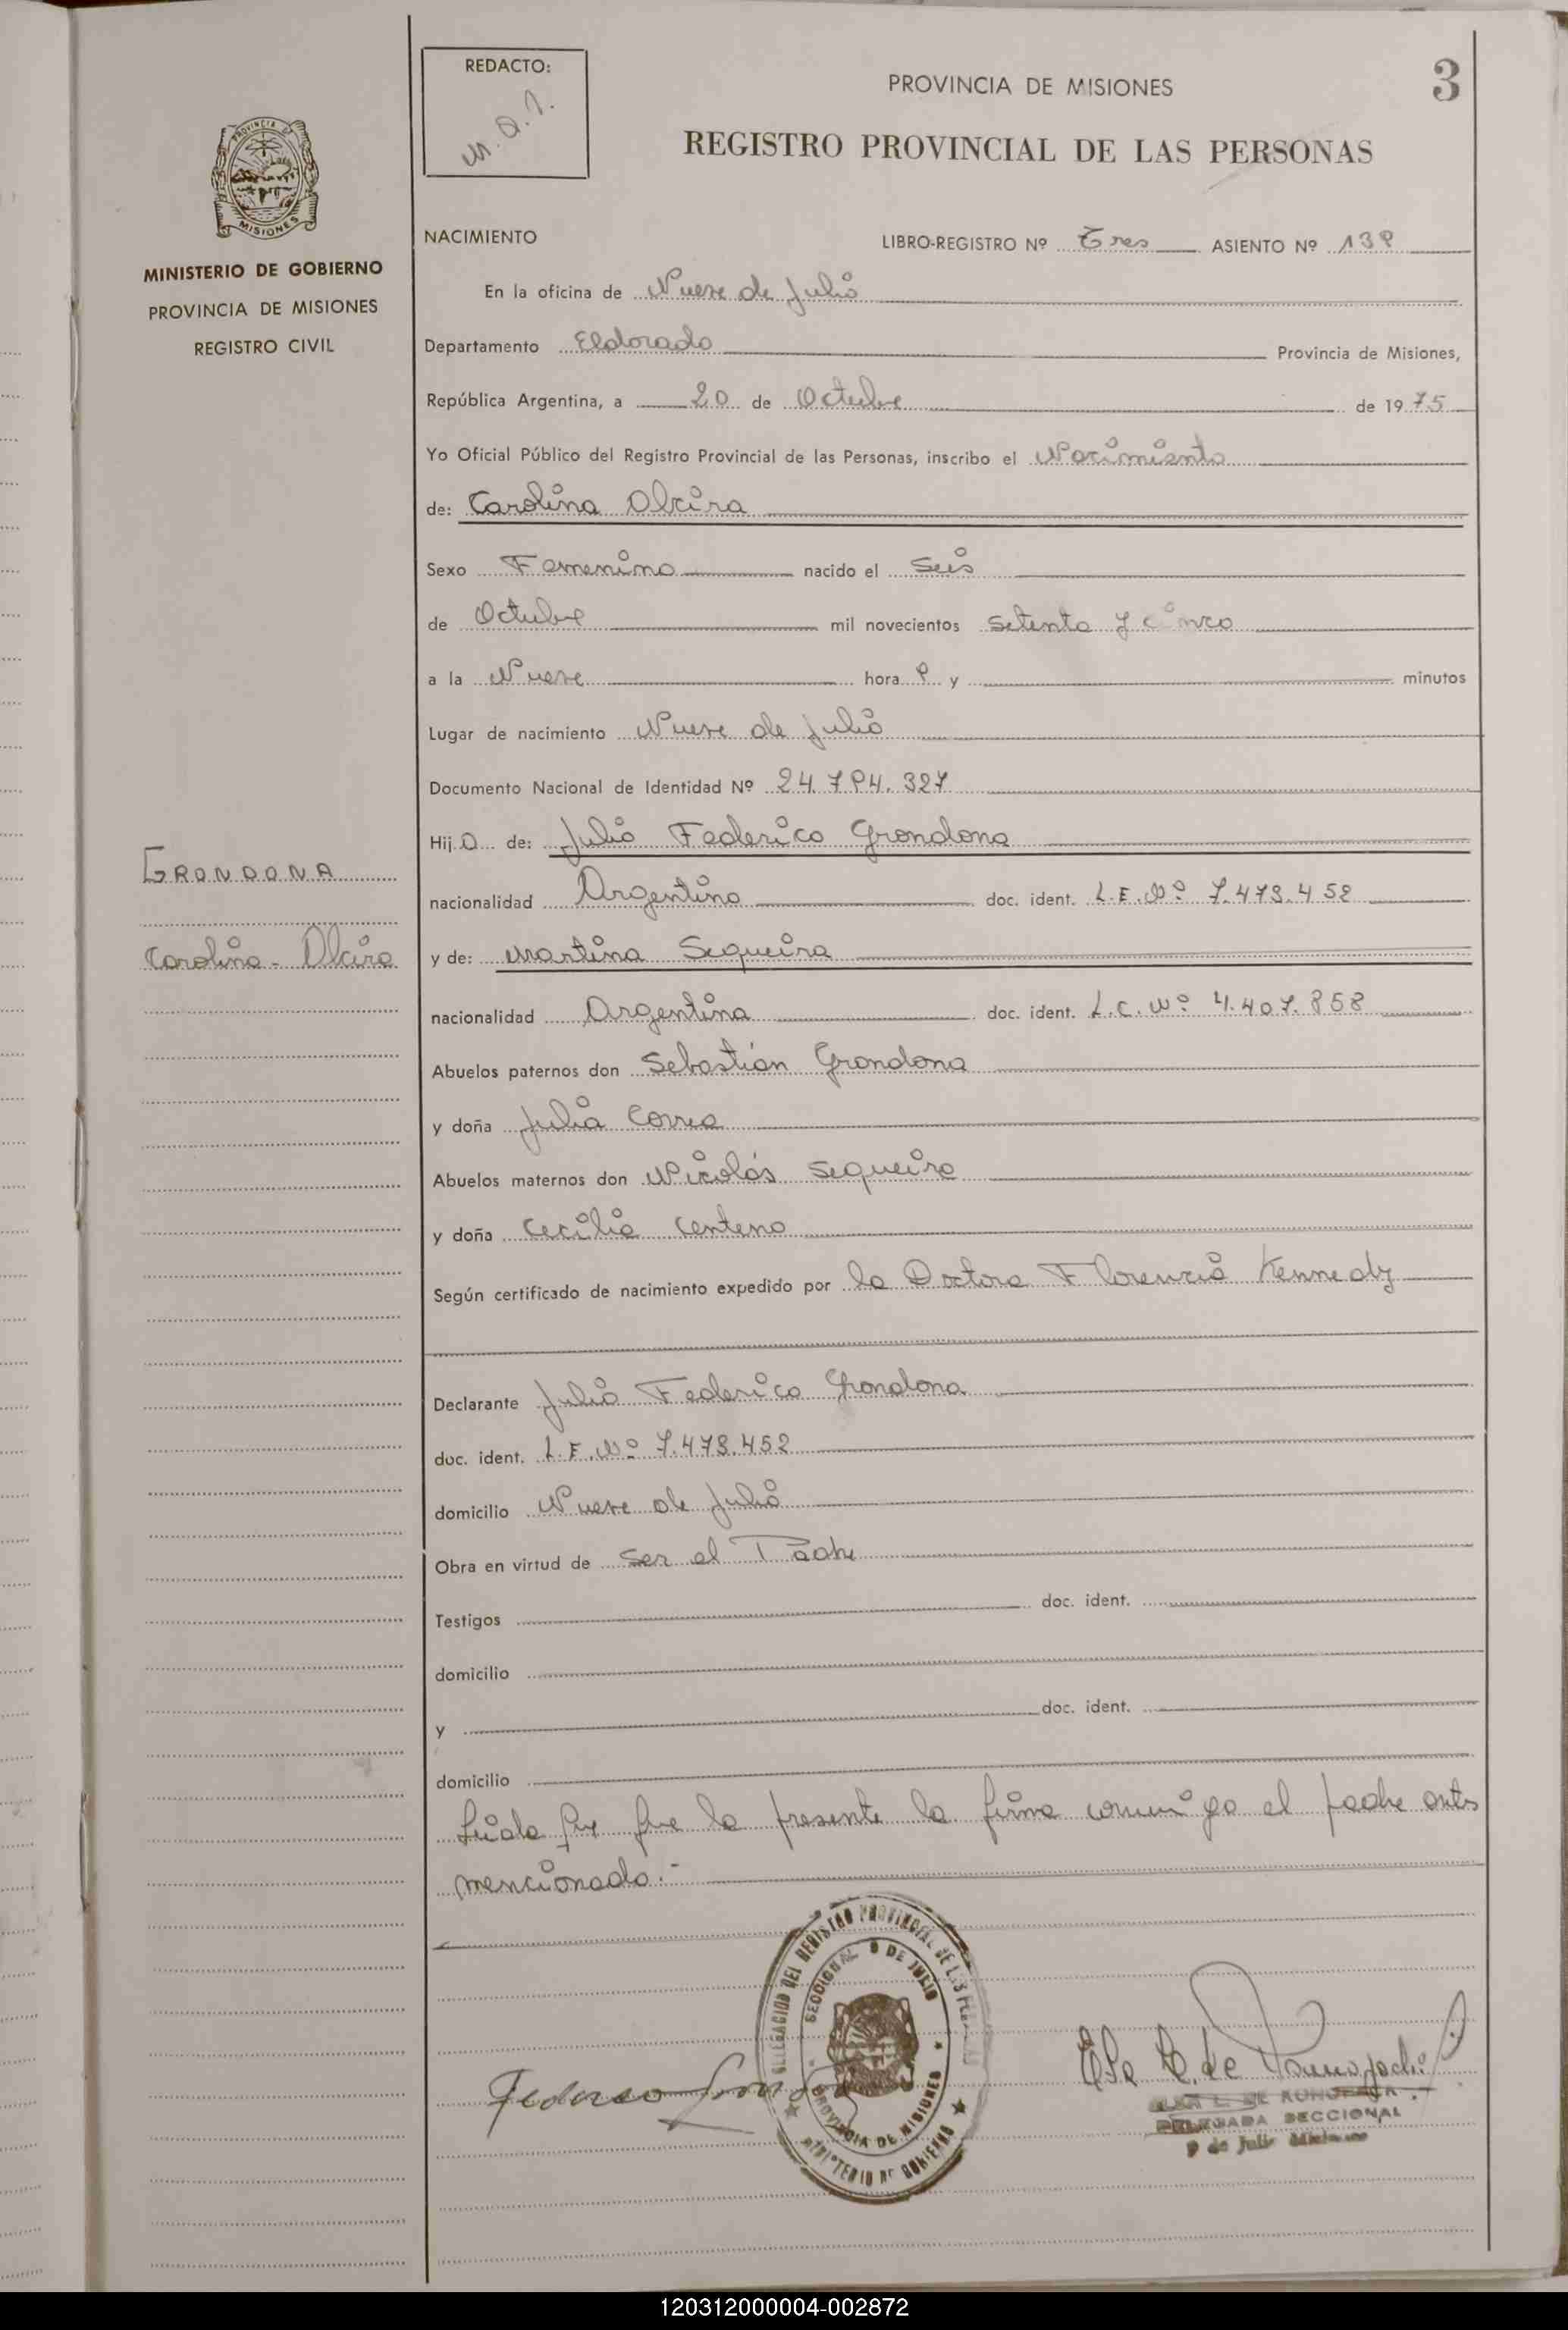 REDACTO:
m. a. r.
PROVINCIA DE MISIONES
3
REGISTRO PROVINCIAL DE LAS PERSONAS
PROVINCIA DE
MISIONES
MINISTERIO DE GOBIERNO
PROVINCIA DE MISIONES
REGISTRO CIVIL
NACIMIENTO
LIBRO-REGISTRO Nº Tres ASIENTO Nº 139
En la oficina de Nueve de Julio
Departamento Eldorado Provincia de Misiones,
República Argentina, a 20 de Octubre de 1975
Yo Oficial Público del Registro Provincial de las Personas, inscribo el Nacimiento
de: Carolina Alcira
Sexo Femenino nacido el Seis
de Octubre mil novecientos Setenta y cinco
a la Nueve hora 9 y minutos
Lugar de nacimiento Nueve de Julio
Documento Nacional de Identidad Nº 24.794.327
Hija de: Julio Federico Grondona
GRONDONA
nacionalidad Argentino doc. ident. L.E.Nº 7.473.452
Carolina - Alcira
y de: Martina Sequeira
nacionalidad Argentina doc. ident. L.C.Nº 4.407.858
Abuelos paternos don Sebastián Grondona
y doña Julia Correa
Abuelos maternos don Nicolás Sequeira
y doña Cecilia Centeno
Según certificado de nacimiento expedido por la Doctora Florencia Kennedy
Declarante Julio Federico Grondona
doc. ident. L.E.Nº 7.473.452
domicilio Nueve de Julio
Obra en virtud de Ser el Padre
Testigos doc. ident.
domicilio
y doc. ident.
domicilio
Leida que fue la presente la firma conmigo el padre antes
mencionado.-
DELEGACION DEL REGISTRO PROVINCIAL DE LAS PERSONAS
SECCIONAL 9 DE JULIO
PROVINCIA DE MISIONES
MINISTERIO DE GOBIERNO
Federico
Elsa L. de
DELEGADA SECCIONAL
9 de Julio Misiones
120312000004-002872